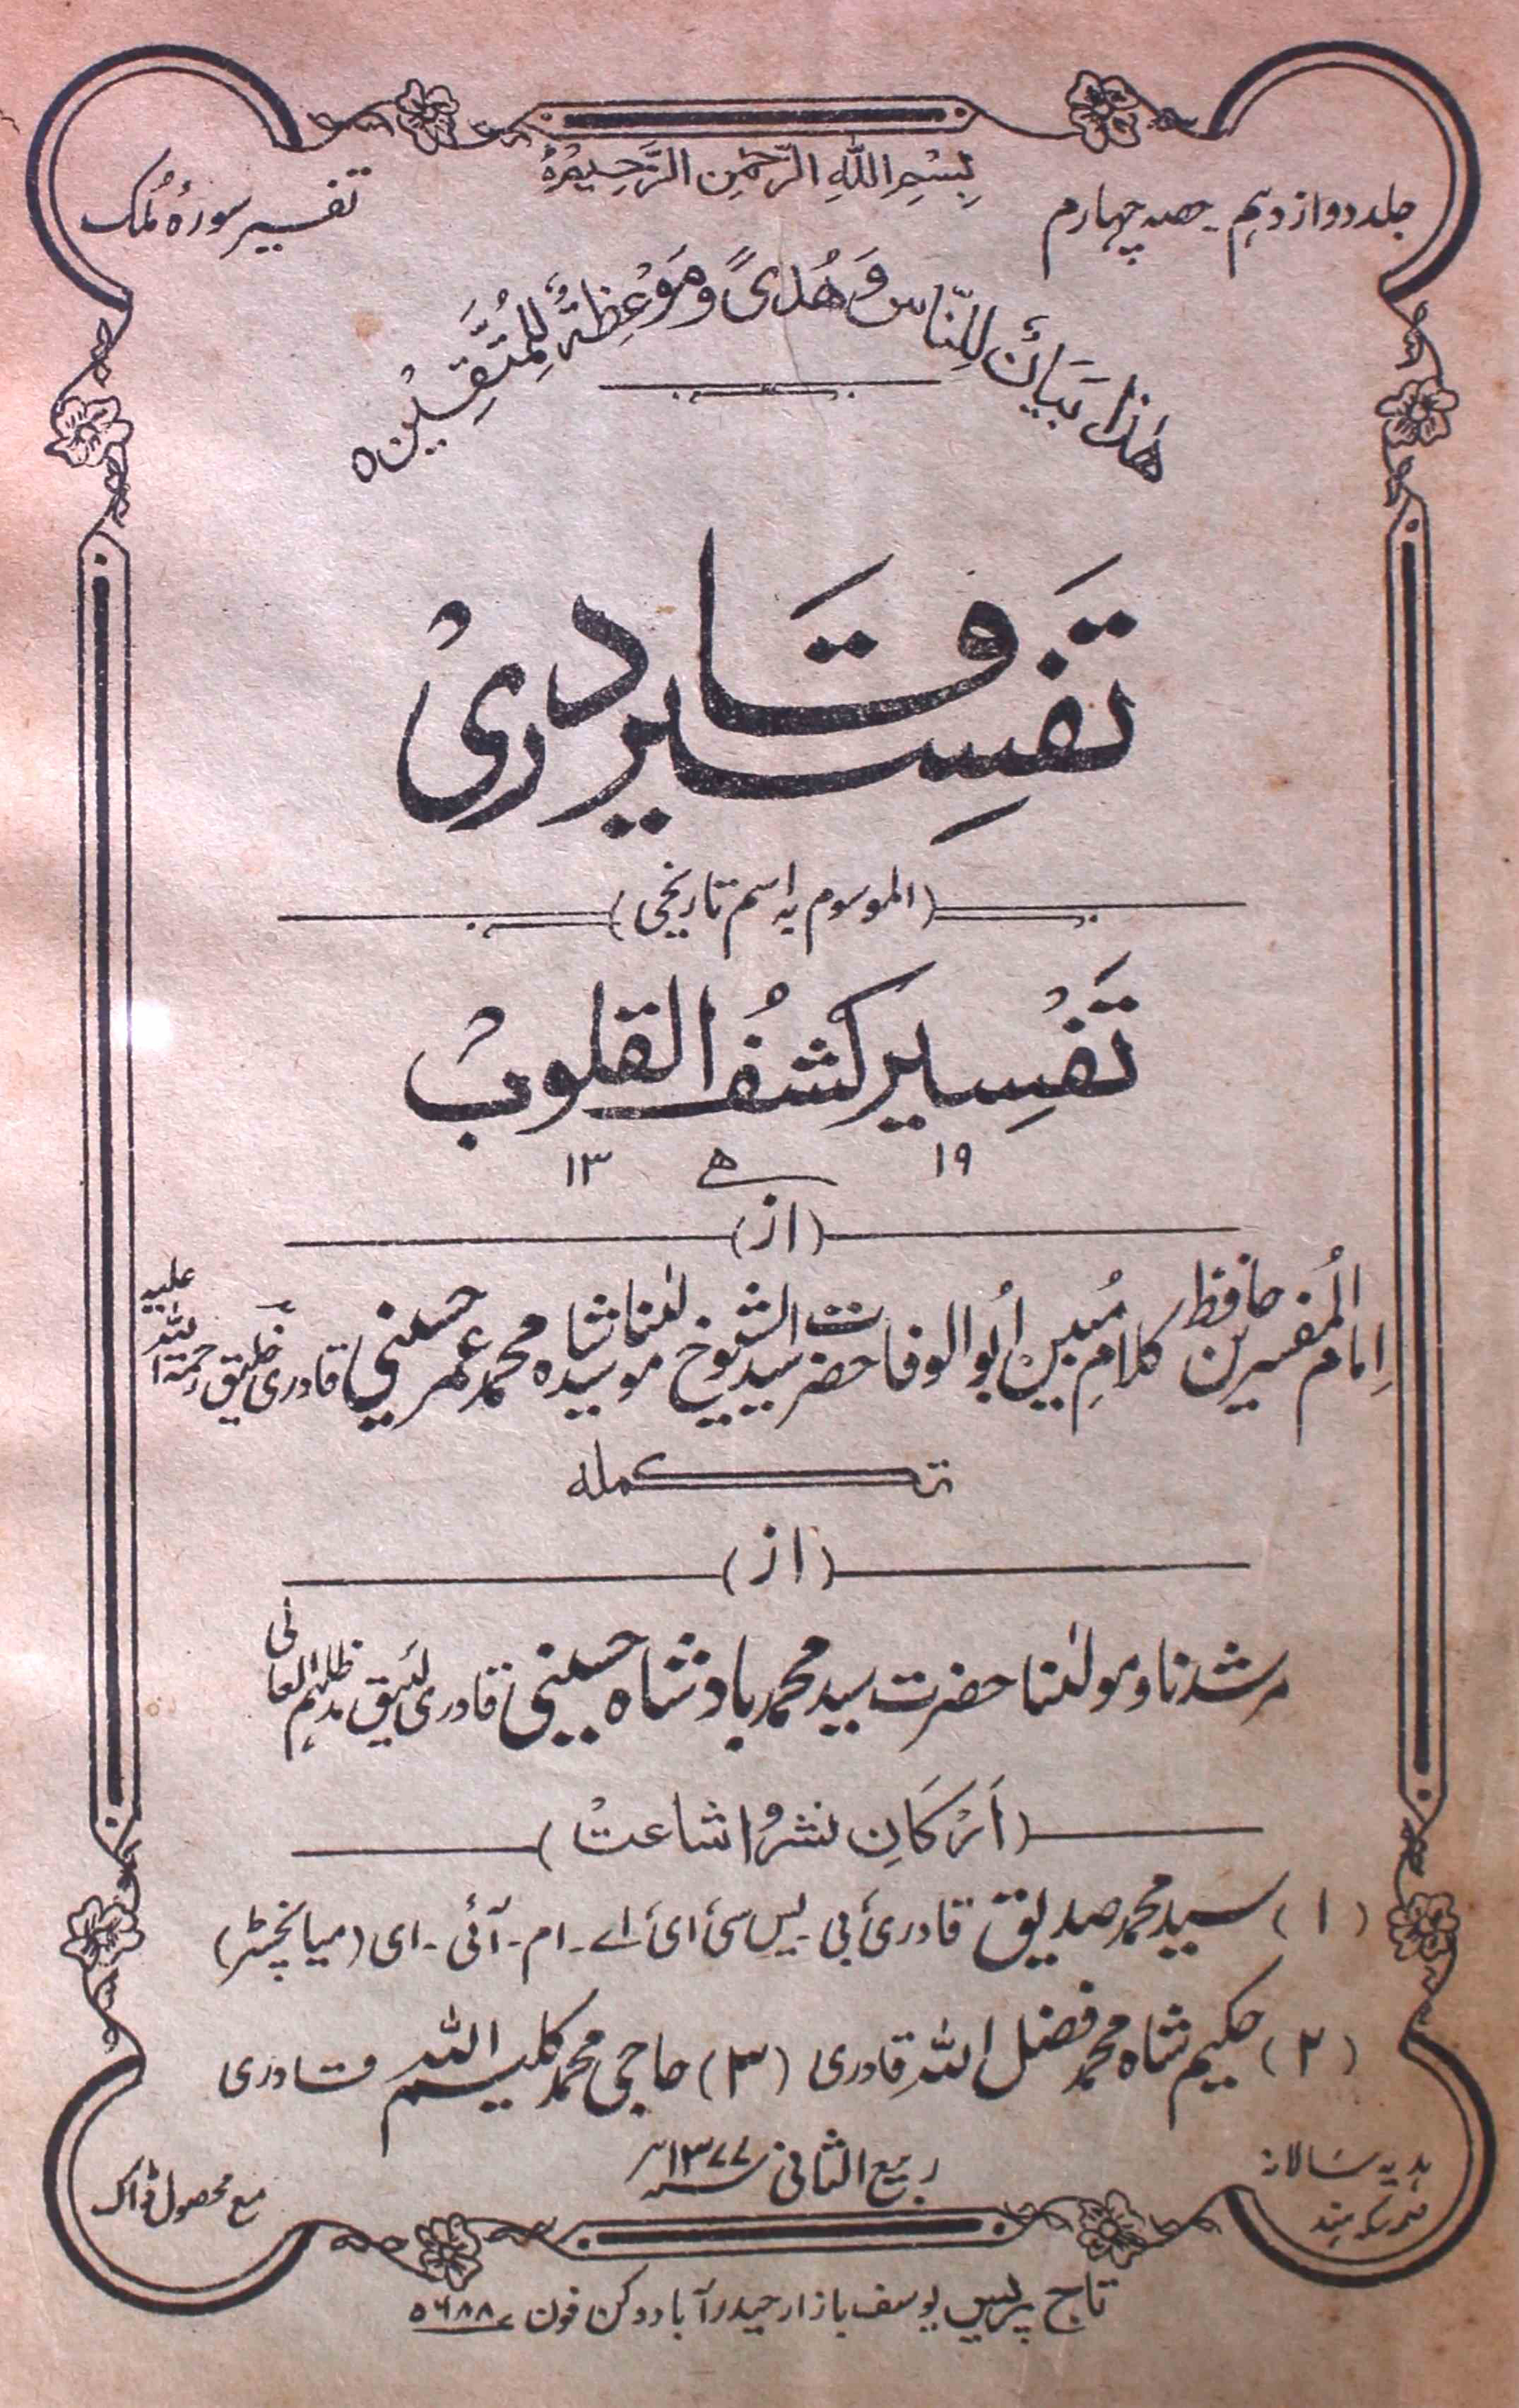 بِسْمِ اللّٰهِ الرَّحْمٰنِ الرَّحِیْمِ ۝
جلد دوازدہم ۔ حصہ چہارم
تفسیر سورۂ مُلک
هٰذَا بَيَانٌ لِلنَّاسِ وَهُدًى وَمَوْعِظَةٌ لِلْمُتَّقِيْنَ ۝
تَفسِیر قَادریْ
(الموسوم بہ اسم تاریخی)
تَفْسِیر کشفُ القلوبْ
۱۹ ھ ۱۳
(از)
اِمام المُفسرین حافظ کلامِ مُبین اُبو الوفا حضرت سید الشیوخ مولٰنا سیدشاہ محمد عمر حسینی قادری خلیق رحمۃ اللہ علیہ
تکملہ
(از)
مرشدنا و مولٰنا حضرت سید محمد بادشاہ حسینی قادری لئیق مدظلہم العالی
(اَرْکَانِ نشر و اشاعتْ)
(۱) سید محمد صدیق قادری بی۔یس سی ای اے۔ ام۔ آئی۔ ای (میانچسٹر)
(۲) حکیم شاہ محمد فضل اللہ قادری (۳) حاجی محمد کلیم اللہ قادری
ربیع الثانی ۱۳۷۷ سنہ
ہدیہ سالانہ
مع محصول ڈاک
تاج پریس یوسف بازار حیدرآباد دکن فون ۵۶۸۸